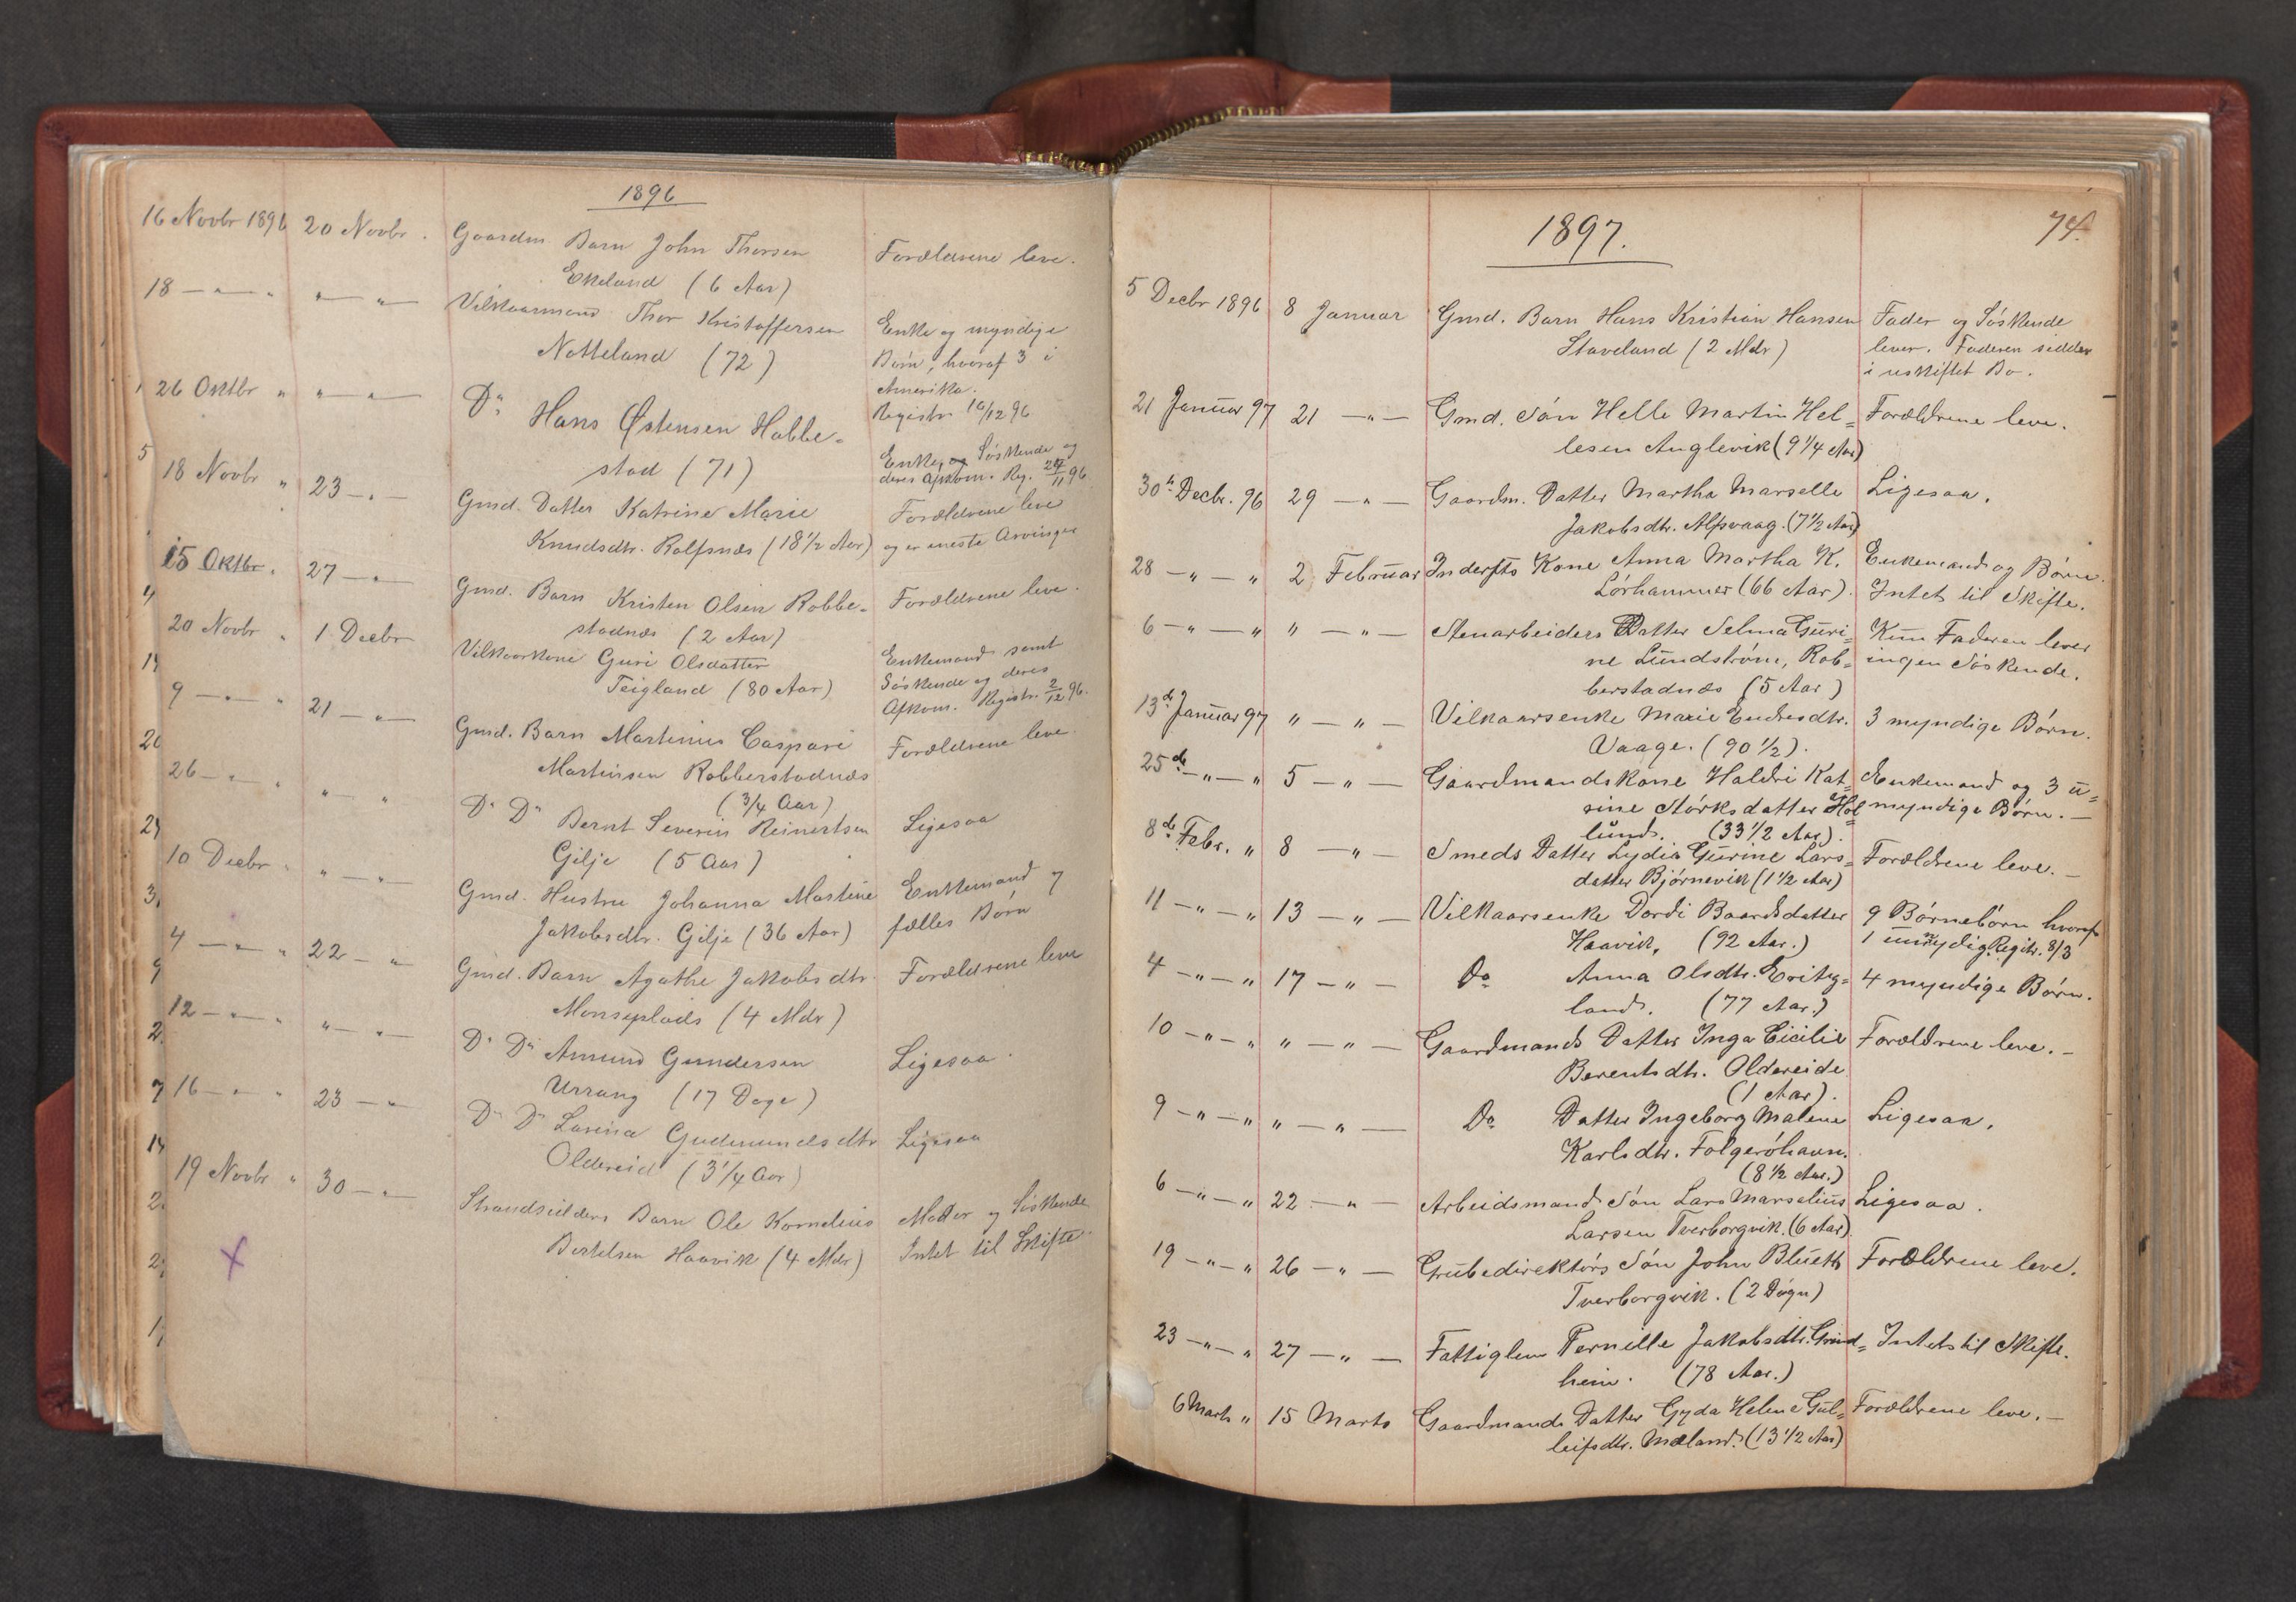 1896
16 Novbr 1896 20 Novbr. Gaardm Barn John Thorsen Forældrene leve.
Ekeland (6 Aar)
18 — " — " " — " — Vilkaarmand Thor Kristoffersen Enke og myndige
Notteland (72) Børn, hvoraf 3 i
Amerika.
26 Oktbr " " — " — Do Hans Østensen Habbe- Registr. 10/12 96
stad (71) Enke, og Søskende og
deres Afkom. Reg. 96
18 Novbr " 23 — " — Gmd. Datter Katrine Marie Forældrene leve
Knudsdtr. Rolfsnæs (18 1/2 Aar) og er eneste Arvinger
15 Oktbr. " 27 — " — Gmd. Barn Kristen Olsen Robbe- Forældrene leve.
stadnæs (2 Aar)
20 Novbr " 1 Decbr Vilkaarkone Guri Olsdatter Enkemand samt
Teigland (80 Aar) Søskende og deres
Afkom. Registr. 2/12 96.
9 — " — " 21 — " — Gmd. Barn Martinius Caspari Forældrene leve.
Martinsen Robberstadnæs
(3/4 Aar)
26 — " — " " — " Do Do Bernt Severin Reinertsen Ligesaa
Gilje (5 Aar)
10 Decbr " " — " — Gmd. Hustru Johanna Martine Enkemand 7
Jakobsdtr. Gilje (36 Aar) fælles Børn
4 — " — " 22 — " Gmd. Barn Agathe Jakobsdtr. Forældrene leve
Monseplads (4 Mdr)
12 — " — " " — " — Do Do Amund Gundersen Ligesaa.
Urrang (17 Dage)
16 — " — " 23 — " Do Do Larina Gudmundsdtr Ligesaa
Oldereid (3 1/4 Aar)
19 Novbr " 30 — " — Strandsidders Barn Ole Kornelius Moder og Søskende
Bertelsen Haavik (4 Mdr) Intet til Skifte.
1897. 74.
5 Decbr 1896 8 Januar Gmd. Barn Hans Kristian Hansen Fader og Søskende
Staveland (2 Mdr) lever. Faderen sidder
i uskiftet Bo.
21 Januar 97 21 — " — Gmd. Søn Helle Martin Hel= Forældrene leve.
lesen Anglevik (9 1/4 Aar)
30te Decbr. 96 29 — " — Gaardm. Datter Martha Marselle Ligesaa.
Jakobsdtr. Alfsvaag. (7 1/2 Aar)
28 — " — " 2 Februar Indersts Kone Anna Martha K. Enkemand og Børn.
Lørhammer (66 Aar). Intet til Skifte.
6 — " — " " — " — Stenarbeiders Datter Selma Guri= Kun Faderen lever
ne Lundstrøm, Rob= ingen Søskende.
berstadnæs (5 Aar)
13de Januar 97 " — " — Vilkaarsenke Marie Endresdtr. 3 myndige Børn.
Vaage. (90 1/2).
25de — " — " 5 — " — Gaardmandskone Haldri Kat Enkemand og 3 u=
rine Størksdatter Hol myndige Børn. —
lund. (33 1/2 Aar).
8de Febr. " 8 — " — Smeds Datter Lydia Gurine Lars= Forældrene leve. —
datter Bjørnevik (1 1/2 Aar)
11 — " — " 13 — " — Vilkaarsenke Dordi Baardsdatter 9 Børnebørn hvoraf
Haavik, (92 Aar.) 1 umyndig. Regitr. 8/3
4 — " — " 17 — " — Do Anna Olsdtr. Eritz= 4 myndige Børn.
land. (77 Aar.)
10 — " — " " — " — Gaardmands Datter Inga Cicilie Forældrene leve. —
Berentsdtr. Oldereide
(1 Aar).
9 — " — " " — " — Do Datter Ingeborg Malene Ligesaa.
Karlsdtr. Folgerøhavn.
(8 1/2 Aar.)
6 — " — " 22 — " — Arbeidsmand Søn Lars Marselius Ligesaa.
Larsen Tverborgvik. (6 Aar)
19 — " — " 26 — " — Grubedirektørs Søn John Blueth Forældrene leve.
Tverborgvik. (2 Døgn)
23 — " — " 27 — " — Fattiglem Pernille Jakobsdtr. Grind= Intet til Skifte.
heim. (78 Aar.)
6 Marts " 15 Marts Gaardmands Datter Gyda Helene Gul= Forældrene leve. —
leifsdtr. Mæland. (13 1/2 Aar)